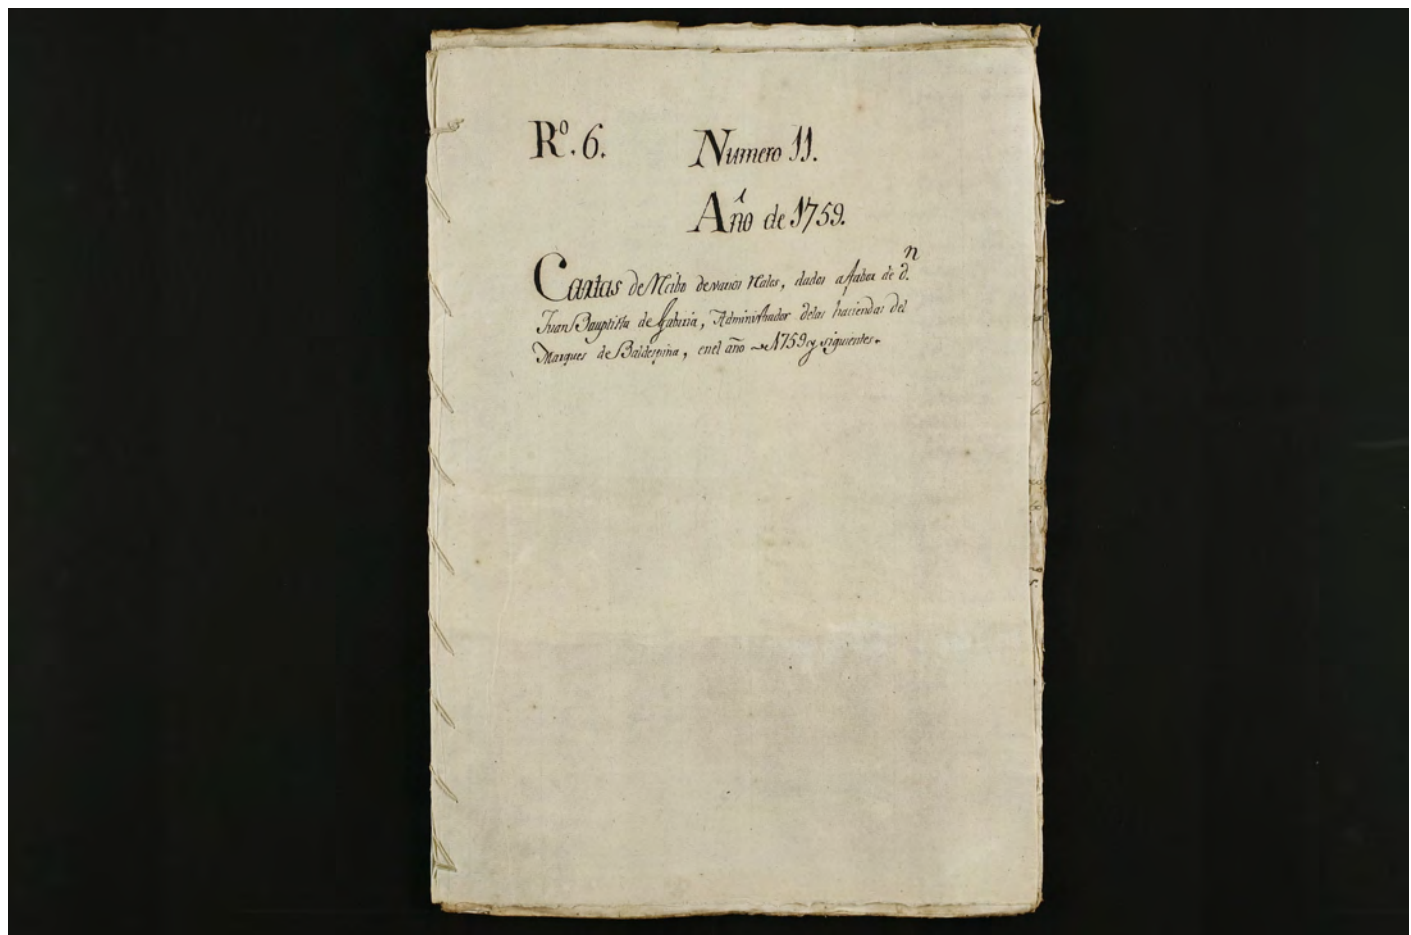 Rº. 6. Numero 11.
Año de 1759.
Cartas de Recibo de varios Rales, dados a fabor de d.n
Juan Bauptista de Gabiria, Administrador delas haciendas del
Marques de Baldespina, enel año de 1759 y siguientes.